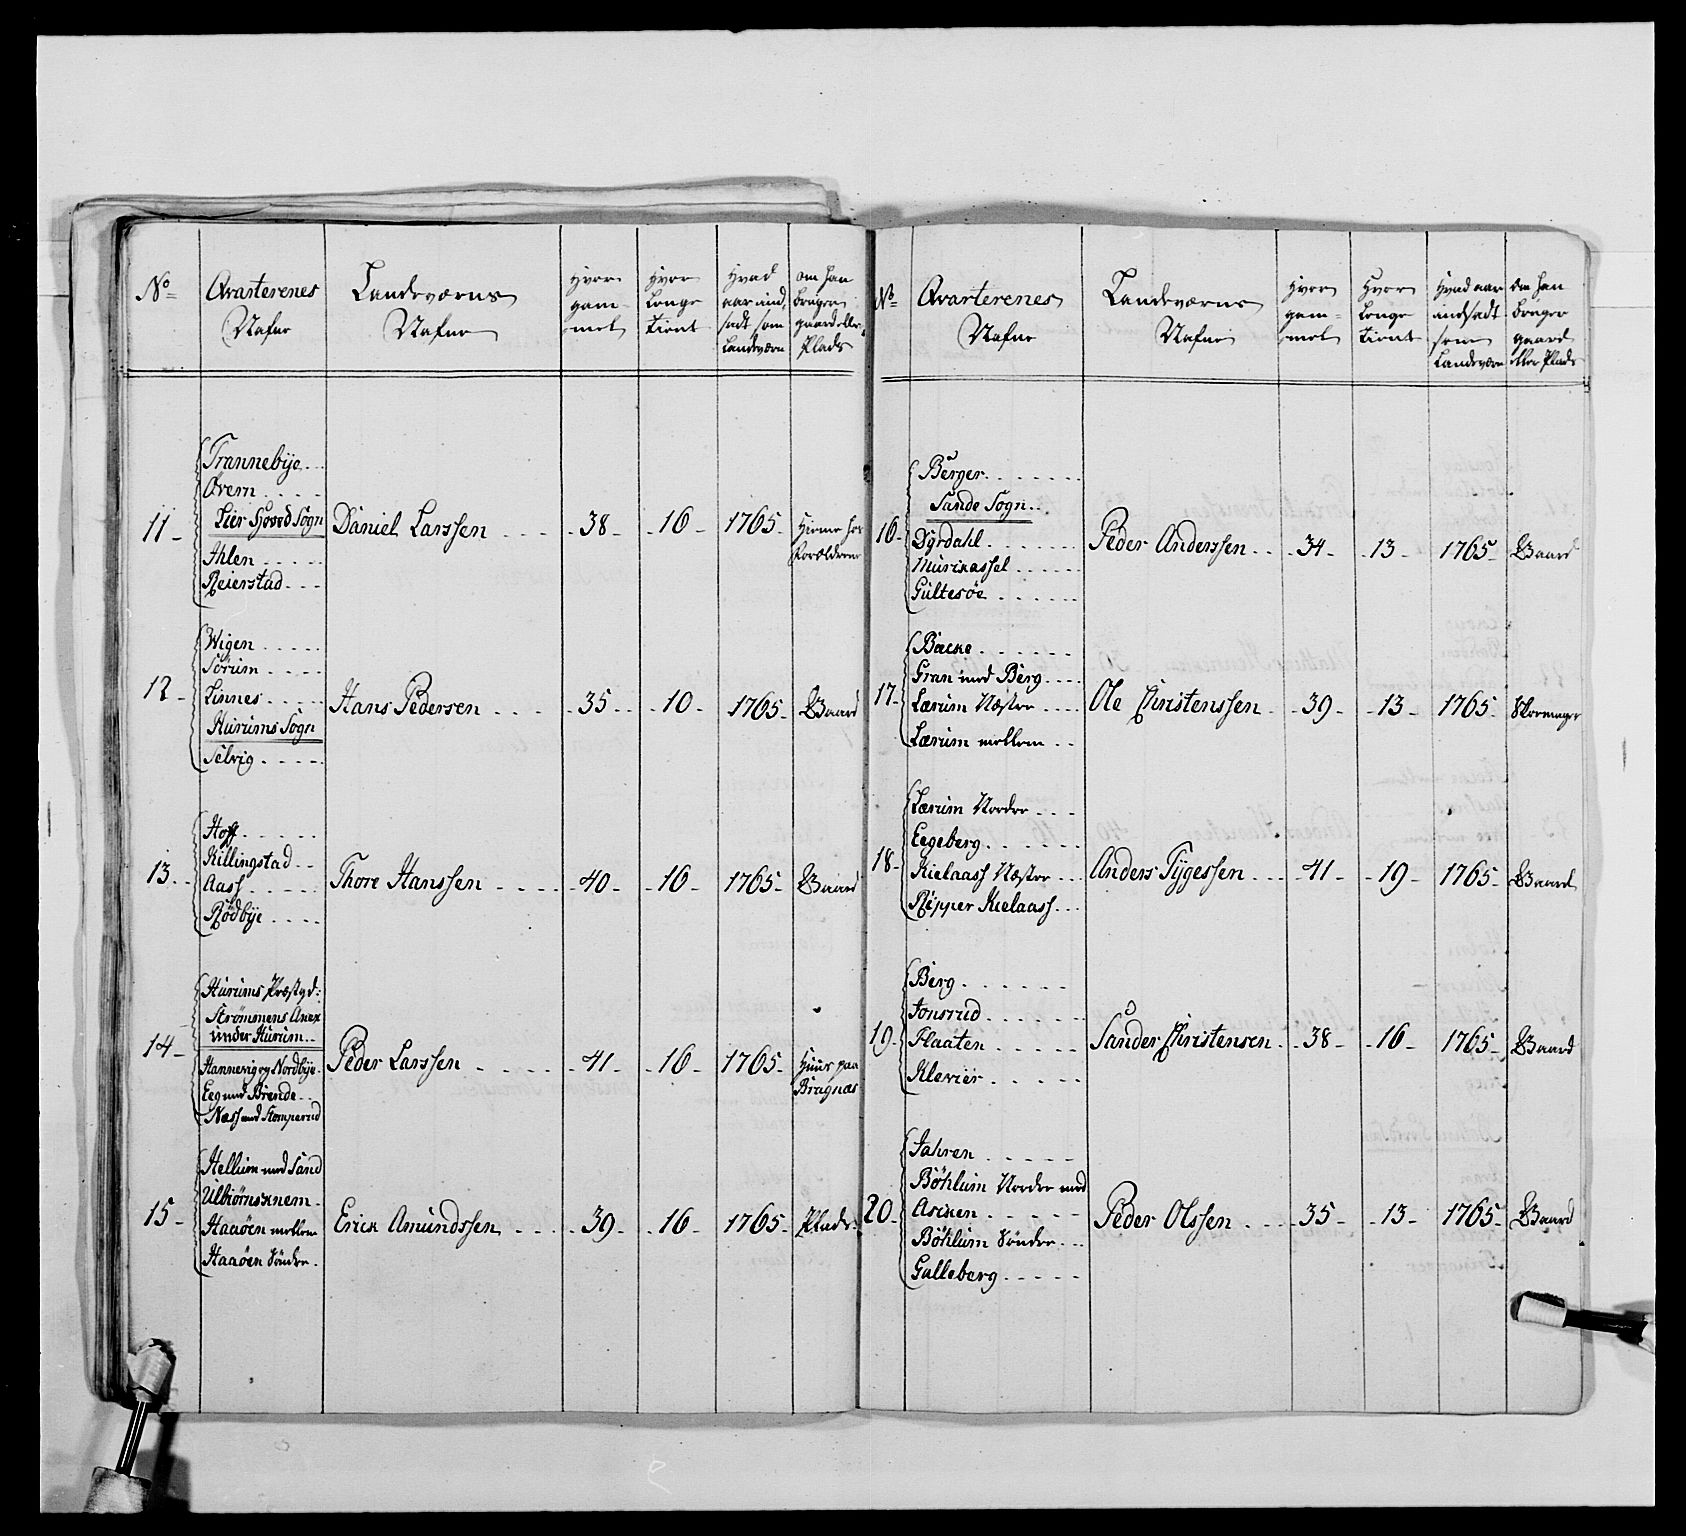 No
Qvarterenes
Nafne
Landeværns
Nafne
Hvor
gam-
mel
Hvor
Lenge
tient
Hvad
aar und
sadt som
Landeværn
om han
bruger
gaard eller
Plads
11 -
Trannebÿe . . .
Øvern . . . .
Lier Hoved Sogn
Ahlen . . . . .
Reierstad . . .
Daniel Larssen . . . . 38 - - 16 - 1765 -
Hieme hos
Forældrene
12 -
Wigen . . . . .
Sørum . . . .
Linnes . . . . .
Hurums Sogn
Selvig . . . . .
Hans Pedersen . . . . 35 - - 10 - 1765 - Gaard
13 -
Hoff . . . . .
Killingstad . .
Aass . . . . .
Rødbÿe . . . .
Thore Hanssen . . . . 40 - - 16 - 1765 - Gaard
14 -
Hurums Præstgd:
Strømmens Anex
under Hurum . .
Hannevig og Nordbÿe -
Eeg med Brende . .
Næss med Stomperud
Peder Larssen . . . . . 41 - - 16 - 1765 -
Huus paa
Bragnæs
15 -
Hellum med Sand
Ulbiørnsknem -
Haaøen mellem
Haaøen Søndre .
Erick Amundssen . . . . 39 - - 16 - 1765 - Plads
No
Qvarterenes
Nafne
Landeværns
Nafne
Hvor
gam-
mel
Hvor
Lenge
tient
Hvad aar
andsadt
som
Landeværn
om han
bruger
gaard
eller Plads
16 -
Berger . . . . . . .
Sande Sogn . . .
Dÿrdahl . . . . . . .
Gultesøe . . . . . .
Peder Anderssen . . - 34 - - 13 - 1765 - Gaard
17 -
Backe . . . . . .
Gran med Berg . . . .
Lærum Næstre . . . .
Lærum mellem . .
Ole Christenssen . - 39 - - 13 - 1765 - Skoemager
18 -
Lærum Nordre . . .
Eegeberg . . . . . .
Kielaass Næstre . . .
Ripper Kielaass . . .
Anders Tÿgessen . . . - 41 - - 19 - 1765 - Gaard
19 -
Berg . . . . . .
Jonsrud . . . . . .
Flaaten . . . . .
Klevier . . . . .
Sander Christensen . - 38 - - 16 - 1765 - Gaard
20 -
Jahren . . . . .
Bøhlum Nordre med
Asknen . . . . .
Bøhlum Søndre . . .
Galleberg . . . . .
Peder Olssen . . . - 35 - - 13 - 1765 - Gaard